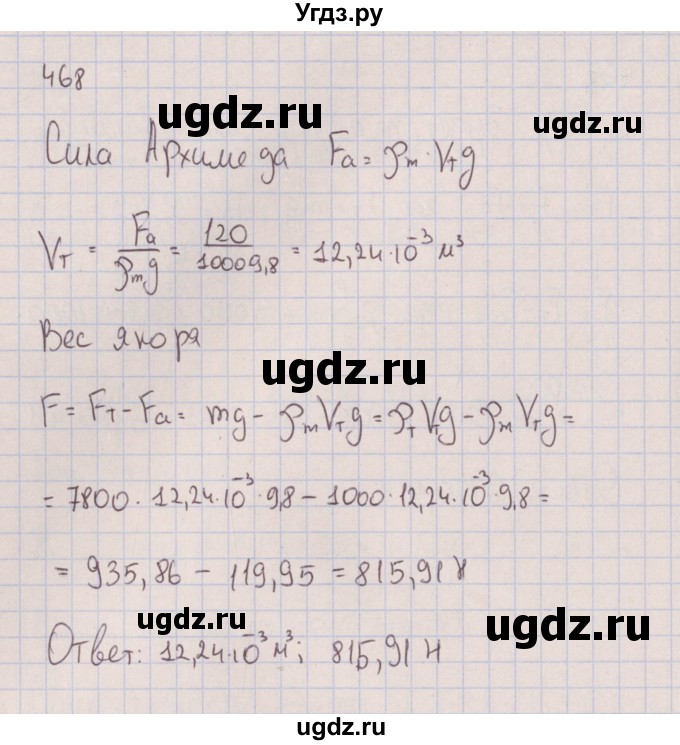 Угдз.ру
468
ugdz.ru
ugdz.ru
Сила Архимеда Fа = ρm·Vтg
Vт = Fа/ρmg = 120/10009,8 = 12,24·10⁻³ м³
Вес якоря
ugdz.ru
F = Fт - Fа = mg - ρmVтg = ρтVтg - ρmVтg =
= 7800·12,24·10⁻³·9,8 - 1000·12,24·10⁻³·9,8 =
= 935,86 - 119,95 = 815,91 Н
ugdz.ru
ugdz.ru
Ответ: 12,24·10⁻³ м³; 815,91 Н
ugdz.ru